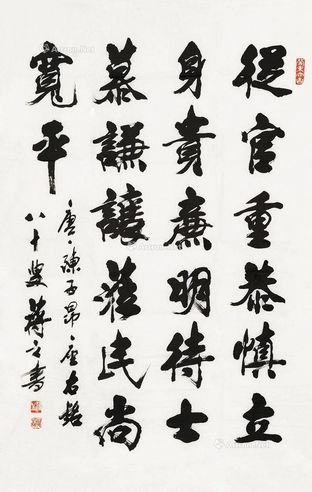 從官重恭慎立
身貴廉明待士
慕謙讓蒞民尚
寬平
唐、陳子昂、座右銘
八十叟蔣之書